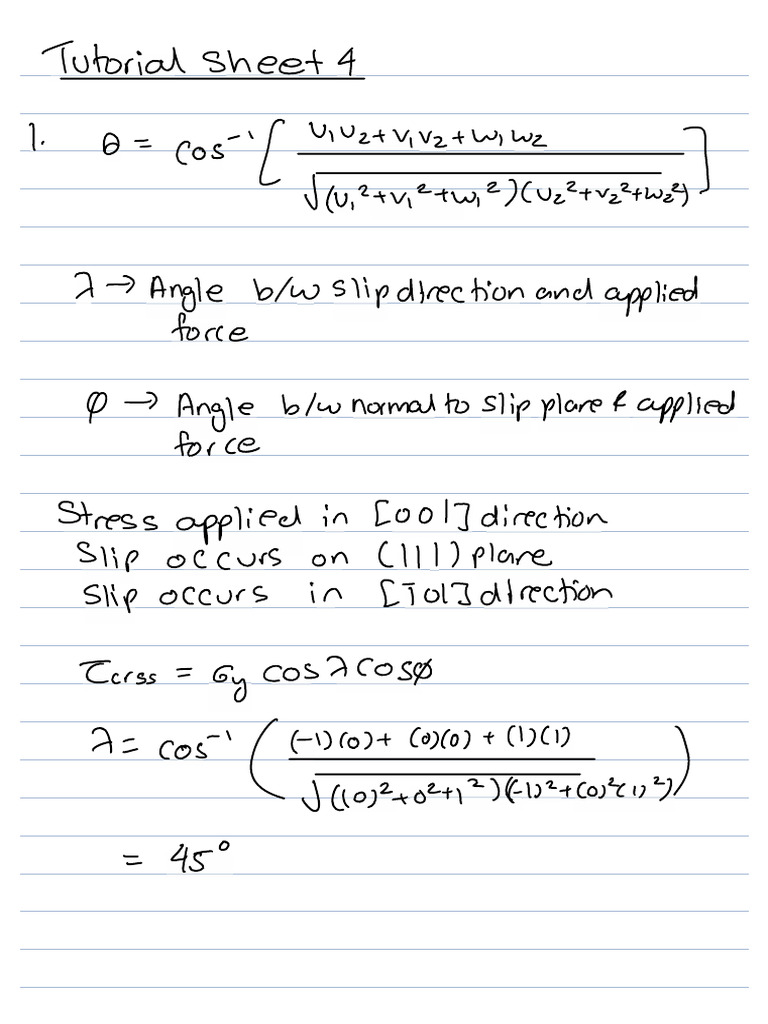 Tutorial Sheet 4
1. θ = cos⁻¹ [ (u₁u₂ + v₁v₂ + w₁w₂) / √((u₁² + v₁² + w₁²)(u₂² + v₂² + w₂²)) ]
λ → Angle b/w slip direction and applied
force
φ → Angle b/w normal to slip plane & applied
force
Stress applied in [001] direction
Slip occurs on (111) plane
Slip occurs in [1̄01] direction
τcrss = σy cosλ cosφ
λ = cos⁻¹ ( ((-1)(0) + (0)(0) + (1)(1)) / √(((0)² + 0² + 1²)((-1)² + (0)²(1)²)) )
= 45°